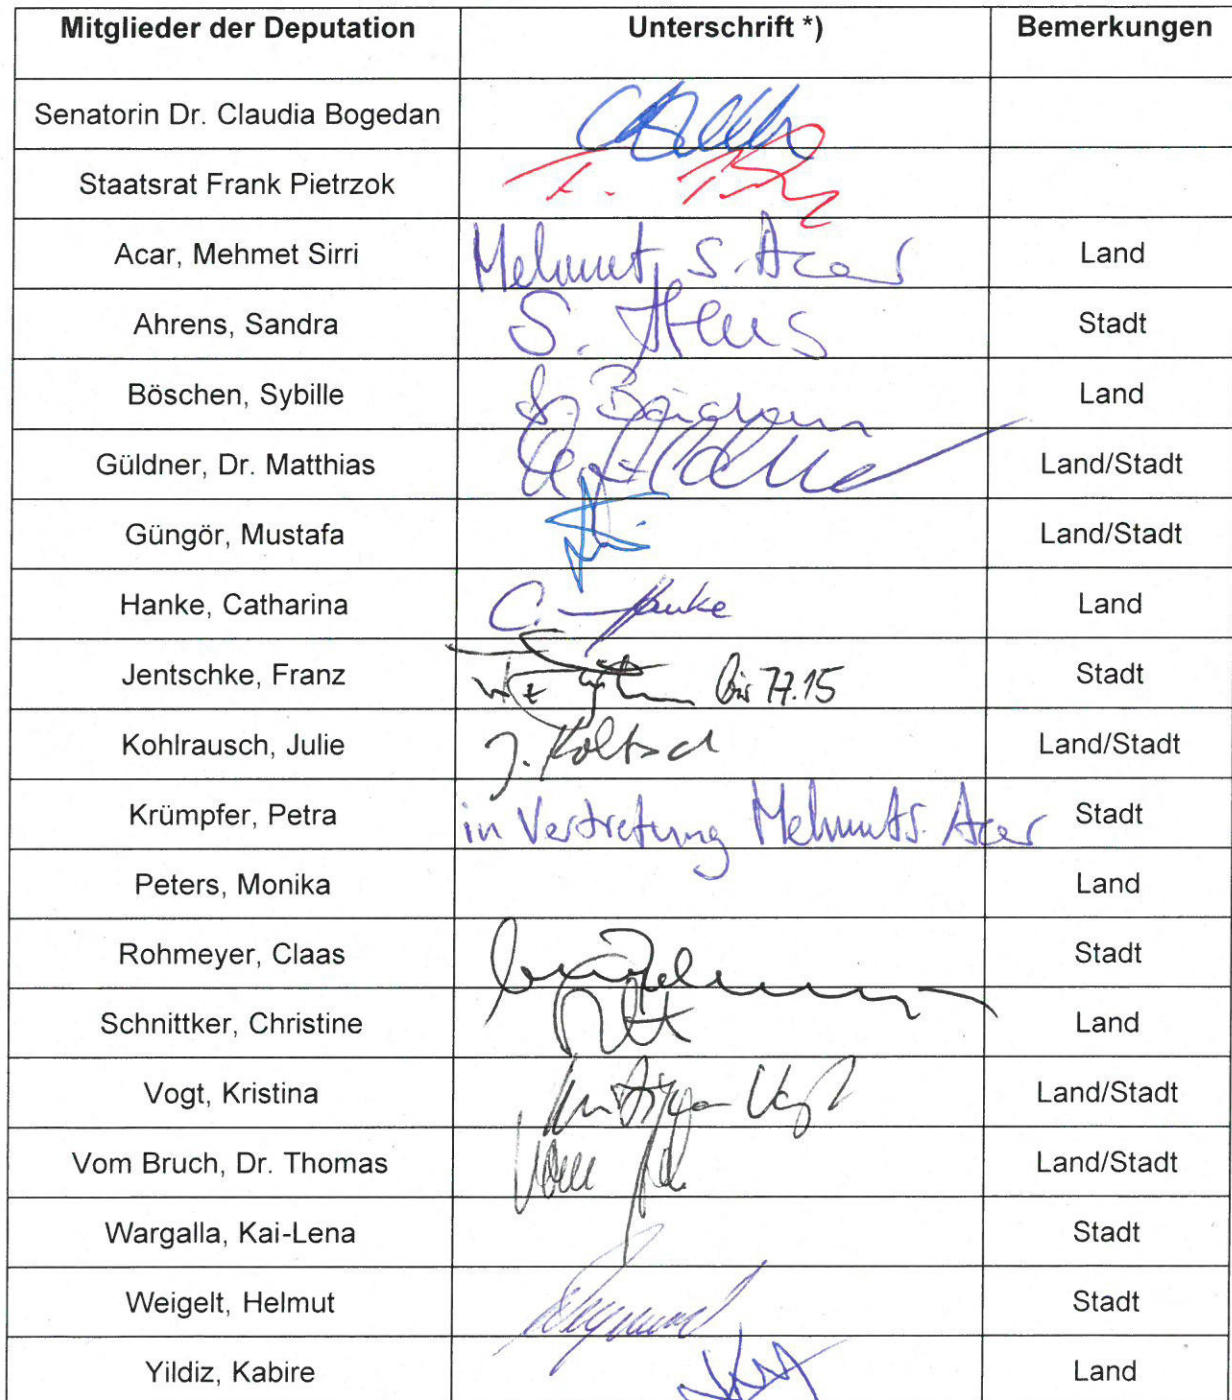 Mitglieder der Deputation Unterschrift *) Bemerkungen
Senatorin Dr. Claudia Bogedan
Staatsrat Frank Pietrzok F.
Acar, Mehmet Sirri Mehmet S. Acar Land
Ahrens, Sandra S. Stadt
Böschen, Sybille Land
Güldner, Dr. Matthias Land/Stadt
Güngör, Mustafa Land/Stadt
Hanke, Catharina C. Hanke Land
Jentschke, Franz bis 17.15 Stadt
Kohlrausch, Julie J. Land/Stadt
Krümpfer, Petra in Vertretung Mehmet S. Acar Stadt
Peters, Monika Land
Rohmeyer, Claas Stadt
Schnittker, Christine Land
Vogt, Kristina Vogt Land/Stadt
Vom Bruch, Dr. Thomas Vom Land/Stadt
Wargalla, Kai-Lena Stadt
Weigelt, Helmut Stadt
Yildiz, Kabire Land